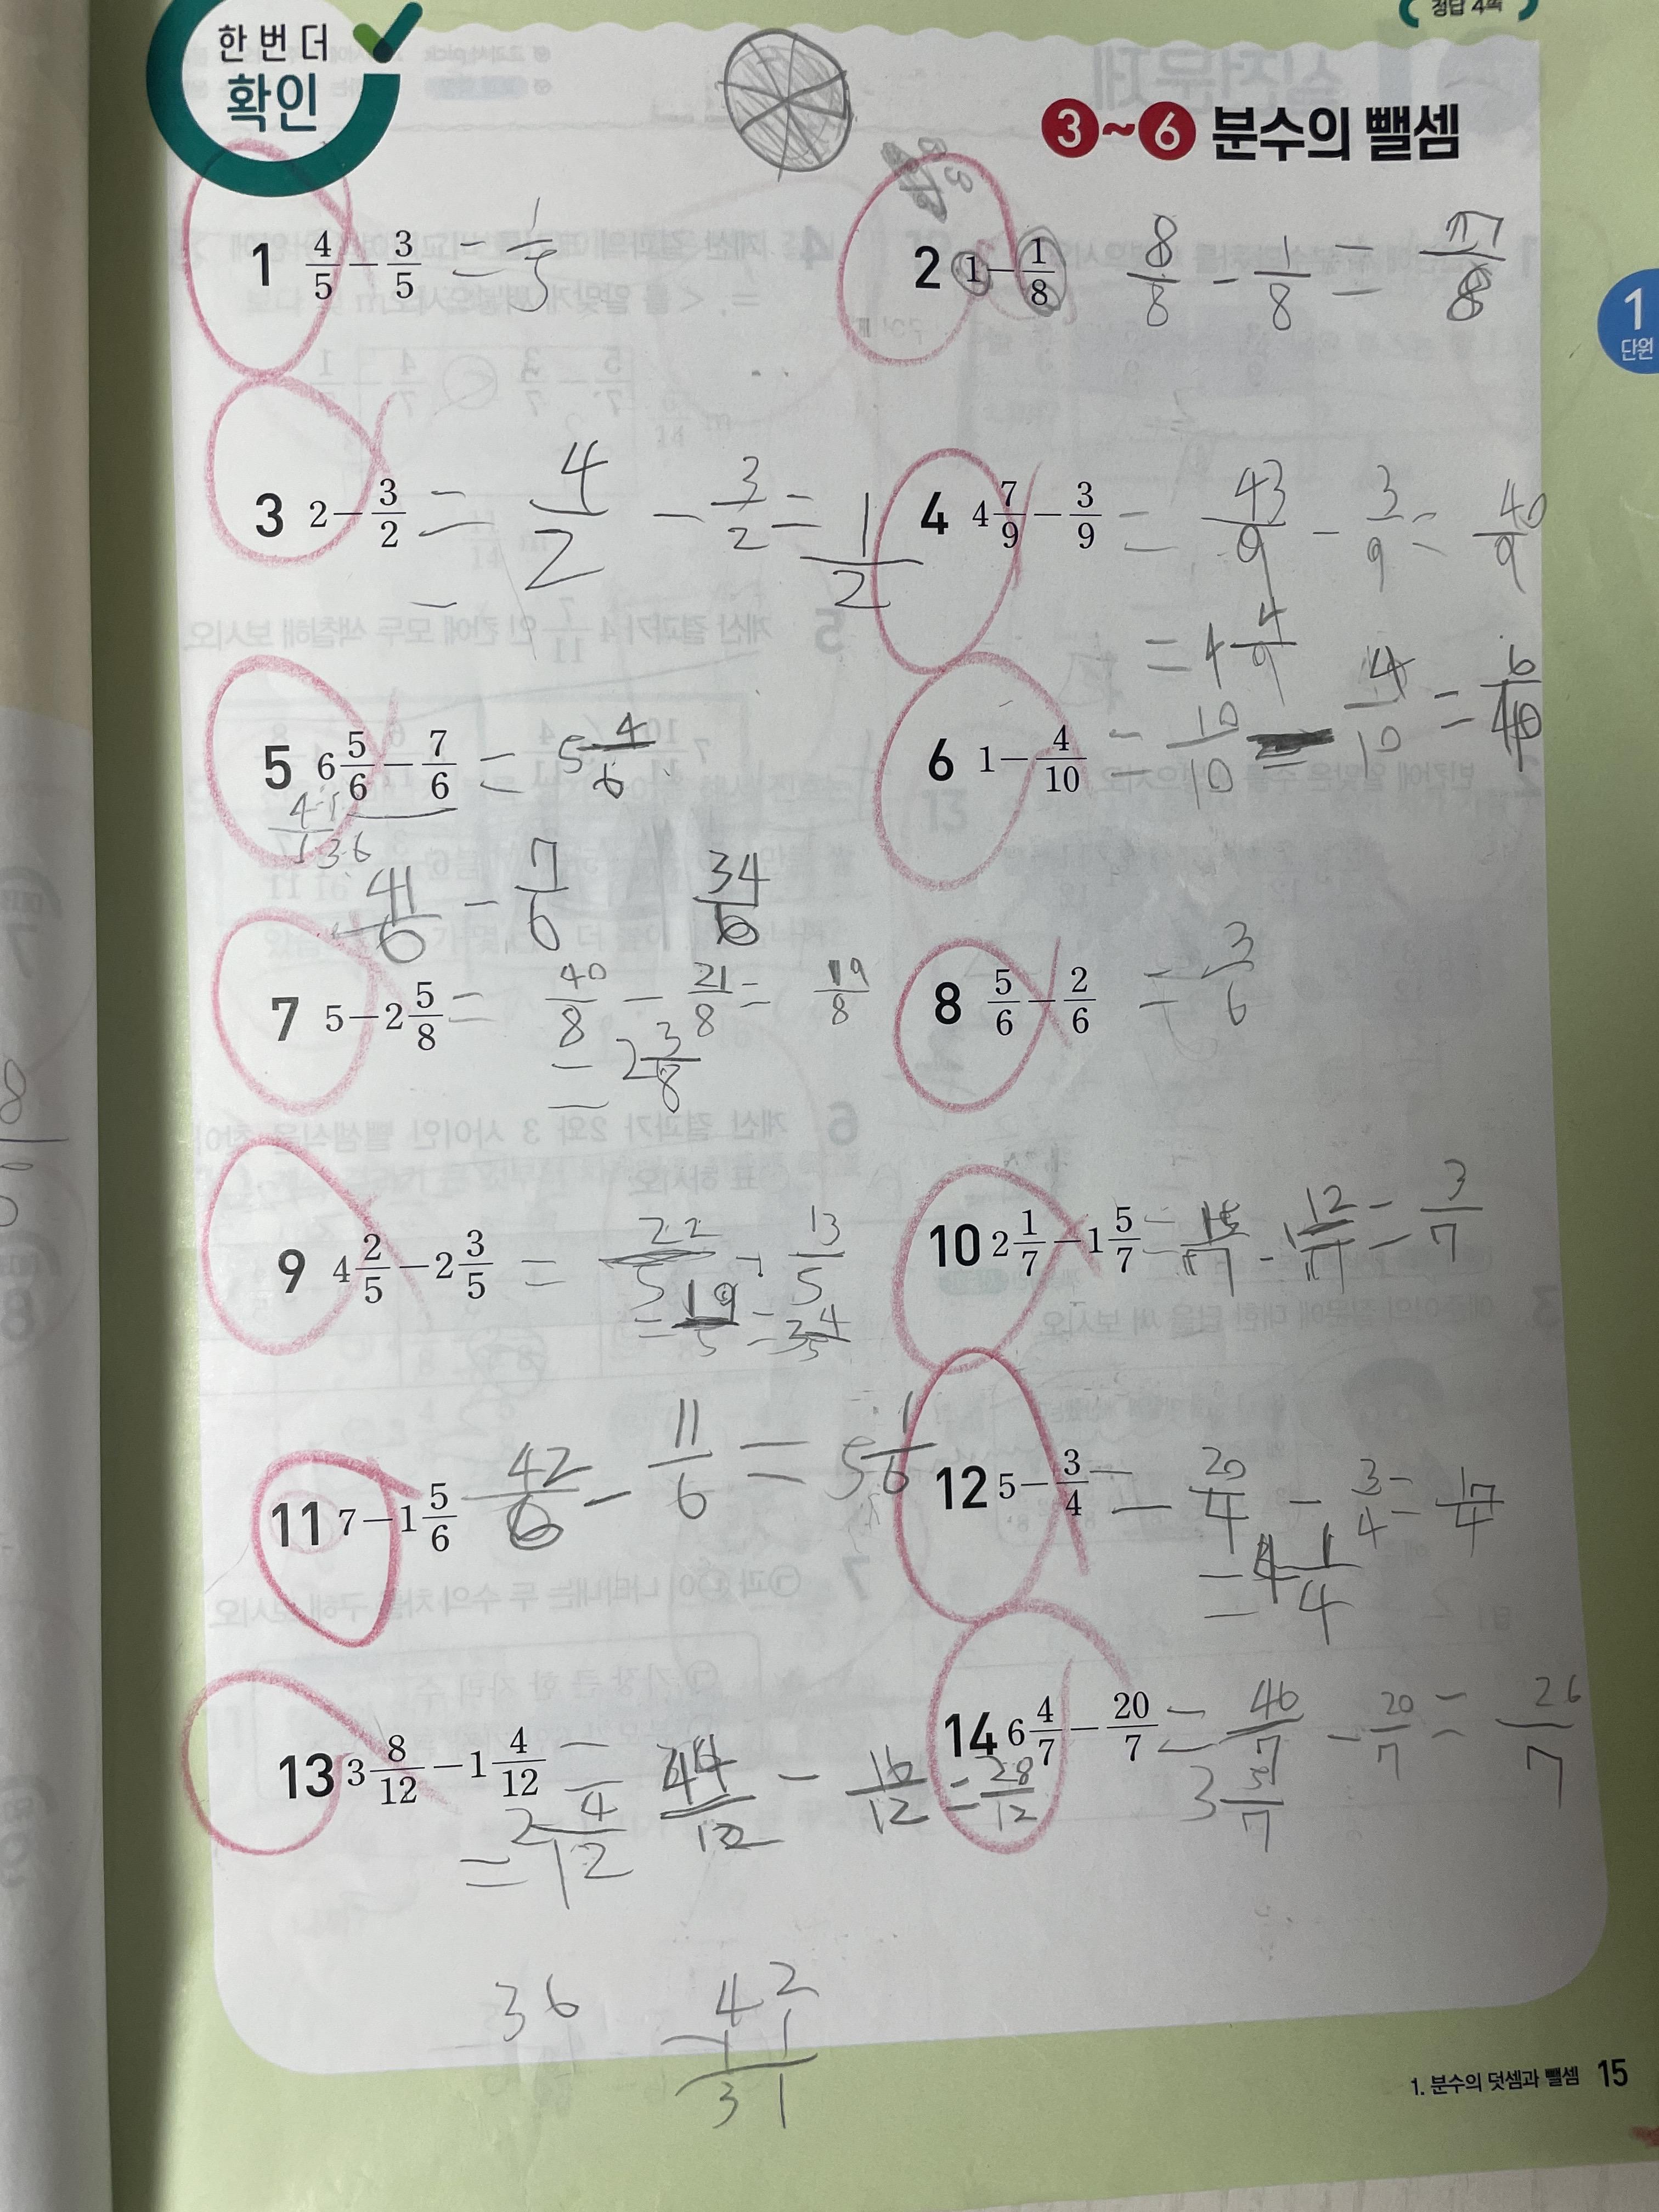 정답 4쪽
한 번 더
확인
3~6 분수의 뺄셈
1단원
1 4/5 - 3/5 = 1/5
2 1 - 1/8 8/8 - 1/8 = 7/8
3 2 - 3/2 = 4/2 - 3/2 = 1/2
4 4 7/9 - 3/9 = 43/9 - 3/9 = 40/9
= 4 4/9
5 6 5/6 - 7/6 = 5 4/6
41/6 - 7/6 34/6
6 1 - 4/10 = 10/10 - 4/10 = 6/10
7 5 - 2 5/8 = 40/8 - 21/8 = 19/8
= 2 3/8
8 5/6 - 2/6 = 3/6
9 4 2/5 - 2 3/5 = 22/5 - 13/5
= 19/5 = 3 4/5
10 2 1/7 - 1 5/7 = 15/7 - 12/7 = 3/7
11 7 - 1 5/6 42/6 - 11/6 = 5 1/6
12 5 - 3/4 = 20/4 - 3/4 = 17/4
= 4 1/4
13 3 8/12 - 1 4/12 = 44/12 - 16/12 = 28/12
= 2 4/12
14 6 4/7 - 20/7 = 46/7 - 20/7 = 26/7
3 5/7
36
42
11
31
1. 분수의 덧셈과 뺄셈 15